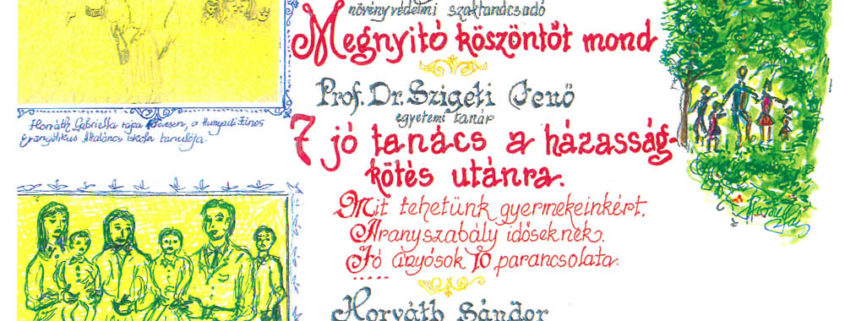 növényvédelmi szaktanácsadó
Megnyitó köszöntőt mond
Prof. Dr. Szigeti Jenő
egyetemi tanár
7 jó tanács a házasság-
kötés utánra.
Mit tehetünk gyermekeinkért.
Aranyszabály időseknek.
Jó anyósok 10 parancsolata.
Horváth Sándor
Horváth Gabriella rajza a Hunyadi János
Evangélikus Általános iskola tanulója